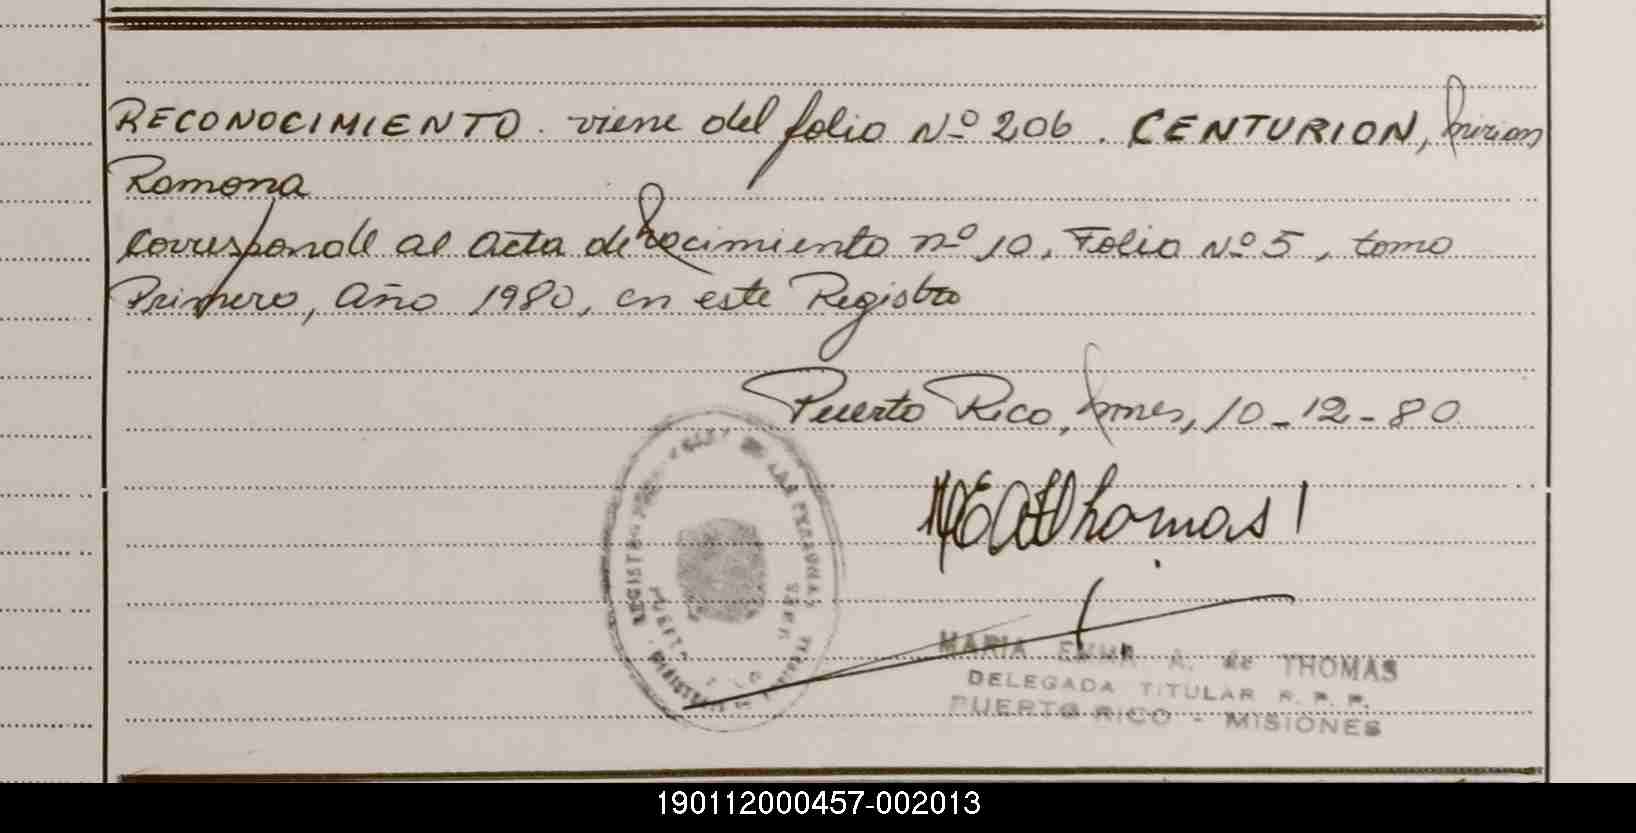 RECONOCIMIENTO. viene del folio Nº 206. CENTURION, Mirian
Ramona
Corresponde al acta de Nacimiento nº 10, Folio Nº 5, tomo
Primero, año 1980, en este Registro
Puerto Rico, Mnes, 10-12-80.
MEAdThomas
MARIA EMMA A. de THOMAS
DELEGADA TITULAR R. P. P.
PUERTO RICO - MISIONES
190112000457-002013